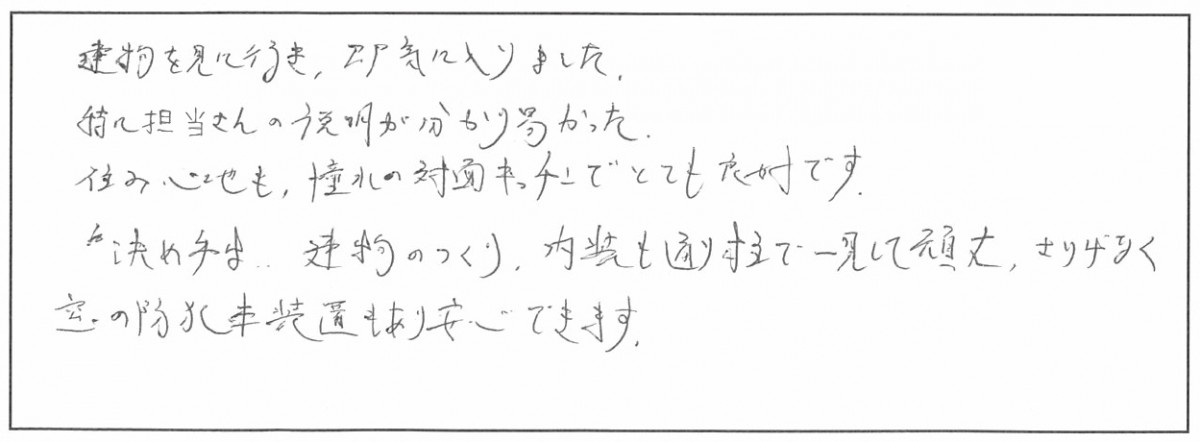 建物を見に行き、即気に入りました。
特に担当さんの説明が分かり易かった。
住み心地も、憧れの対面キッチンでとても良好です。
決め手は‥建物のつくり、内装も通り柱で一見して頑丈、さりげなく
窓の防犯装置もあり安心できます。